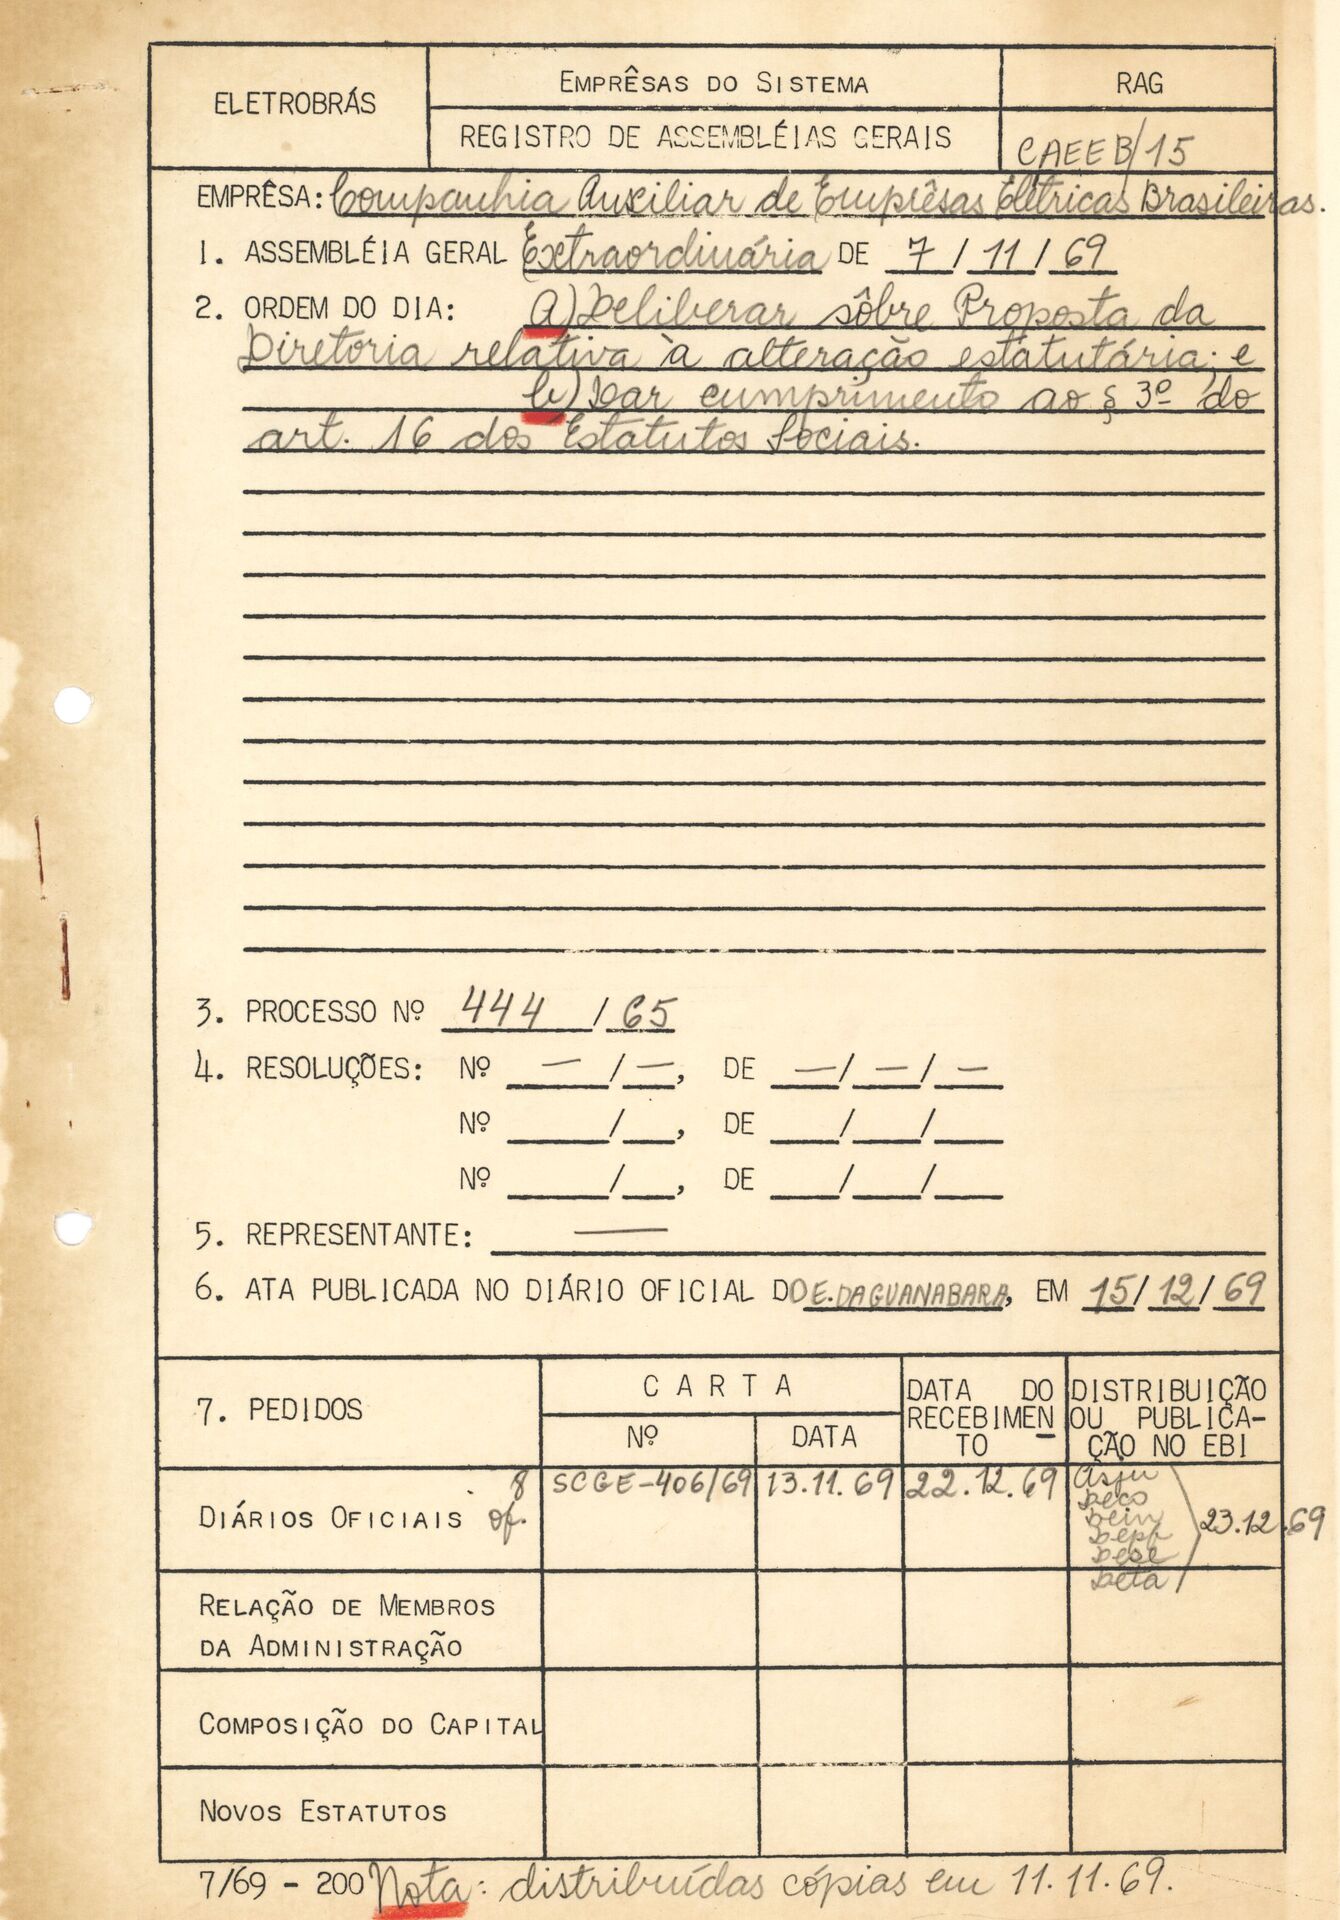 ELETROBRÁS
EMPRÊSAS DO SISTEMA
RAG
REGISTRO DE ASSEMBLÉIAS GERAIS
CAEEB/15
EMPRÊSA: Companhia Auxiliar de Emprêsas Elétricas Brasileiras.
1. ASSEMBLÉIA GERAL Extraordinária DE 7/11/69
2. ORDEM DO DIA: a) Deliberar sôbre Proposta da
Diretoria relativa à alteração estatutária; e
b) Dar cumprimento ao § 3º do
art. 16 dos Estatutos Sociais.
3. PROCESSO Nº 444/65
4. RESOLUÇÕES: Nº — / —, DE — / — / —
Nº ____/___, DE ___/___/___
Nº ____/___, DE ___/___/___
5. REPRESENTANTE: —
6. ATA PUBLICADA NO DIÁRIO OFICIAL DO E. DA GUANABARA, EM 15/12/69
7. PEDIDOS
CARTA
Nº
DATA
DATA DO
RECEBIMEN
TO
DISTRIBUIÇÃO
OU PUBLICA-
ÇÃO NO EBI
DIÁRIOS OFICIAIS 8 of.
SCGE-406/69
13.11.69
22.12.69
Asju
Deco
Dein
Depf
Dese
Deta
23.12.69
RELAÇÃO DE MEMBROS
DA ADMINISTRAÇÃO
COMPOSIÇÃO DO CAPITAL
NOVOS ESTATUTOS
7/69 - 200 Nota: distribuídas cópias em 11.11.69.